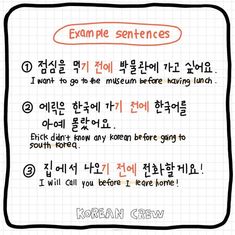 Example sentences
① 점심을 먹기 전에 박물관에 가고 싶어요.
I want to go to the museum before having lunch.
② 에릭은 한국에 가기 전에 한국어를
아예 몰랐어요.
Erick didn't know any korean before going to
south Korea.
③ 집에서 나오기 전에 전화할게요!
I will call you before I leave home!
KOREAN CREW